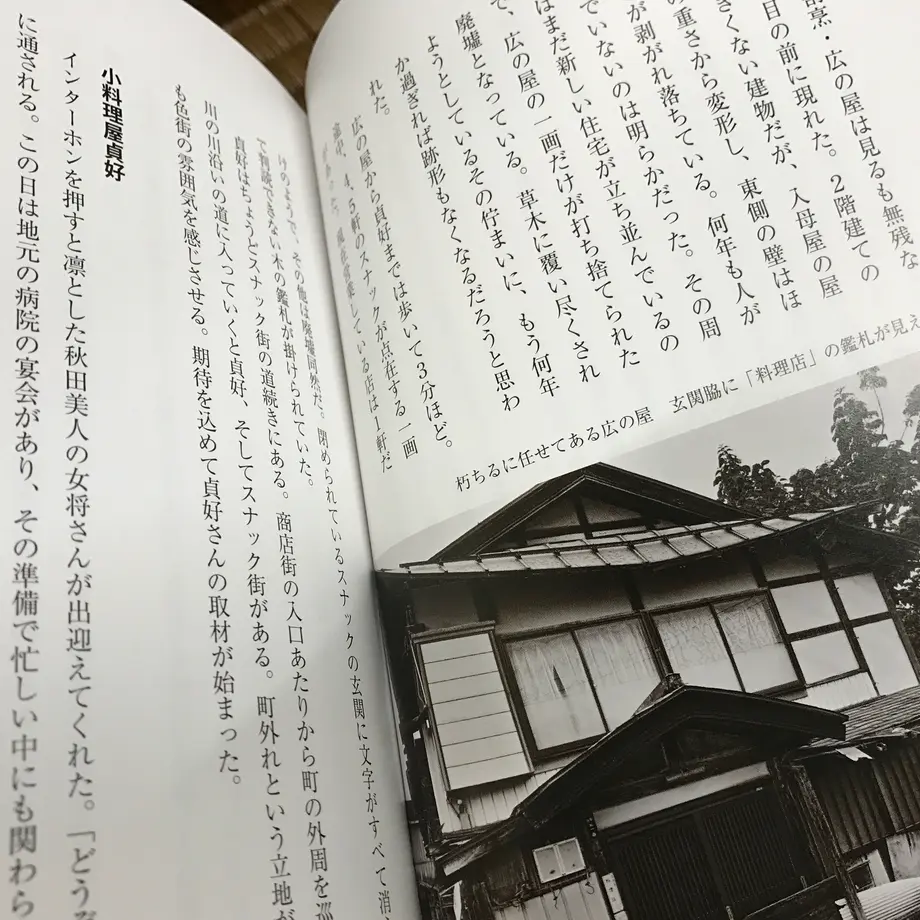 割烹・広の屋は見るも無残な
目の前に現れた。2階建ての
きくない建物だが、入母屋の屋
の重さから変形し、東側の壁はほ
が剥がれ落ちている。何年も人が
でいないのは明らかだった。その周
はまだ新しい住宅が立ち並んでいるの
で、広の屋の一画だけが打ち捨てられた
廃墟となっている。草木に覆い尽くされ
ようとしているその佇まいに、もう何年
か過ぎれば跡形もなくなるだろうと思わ
れた。
広の屋から貞好までは歩いて3分ほど。
途中、4、5軒のスナックが点在する一画
があった。現在営業している店は1軒だ
朽ちるに任せてある広の屋 玄関脇に「料理店」の鑑札が見え
けのようで、その他は廃墟同然だ。閉められているスナックの玄関に文字がすべて消
で判読できない木の鑑札が掛けられていた。
貞好はちょうどスナック街の道続きにある。商店街の入口あたりから町の外周を巡
川の川沿いの道に入っていくと貞好、そしてスナック街がある。町外れという立地が
も色街の雰囲気を感じさせる。期待を込めて貞好さんの取材が始まった。
小料理屋貞好
インターホンを押すと凛とした秋田美人の女将さんが出迎えてくれた。「どうぞ
に通される。この日は地元の病院の宴会があり、その準備で忙しい中にも関わら